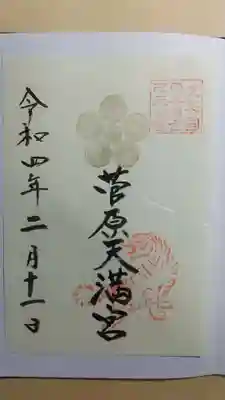 菅原天満宮
令和四年二月十一日